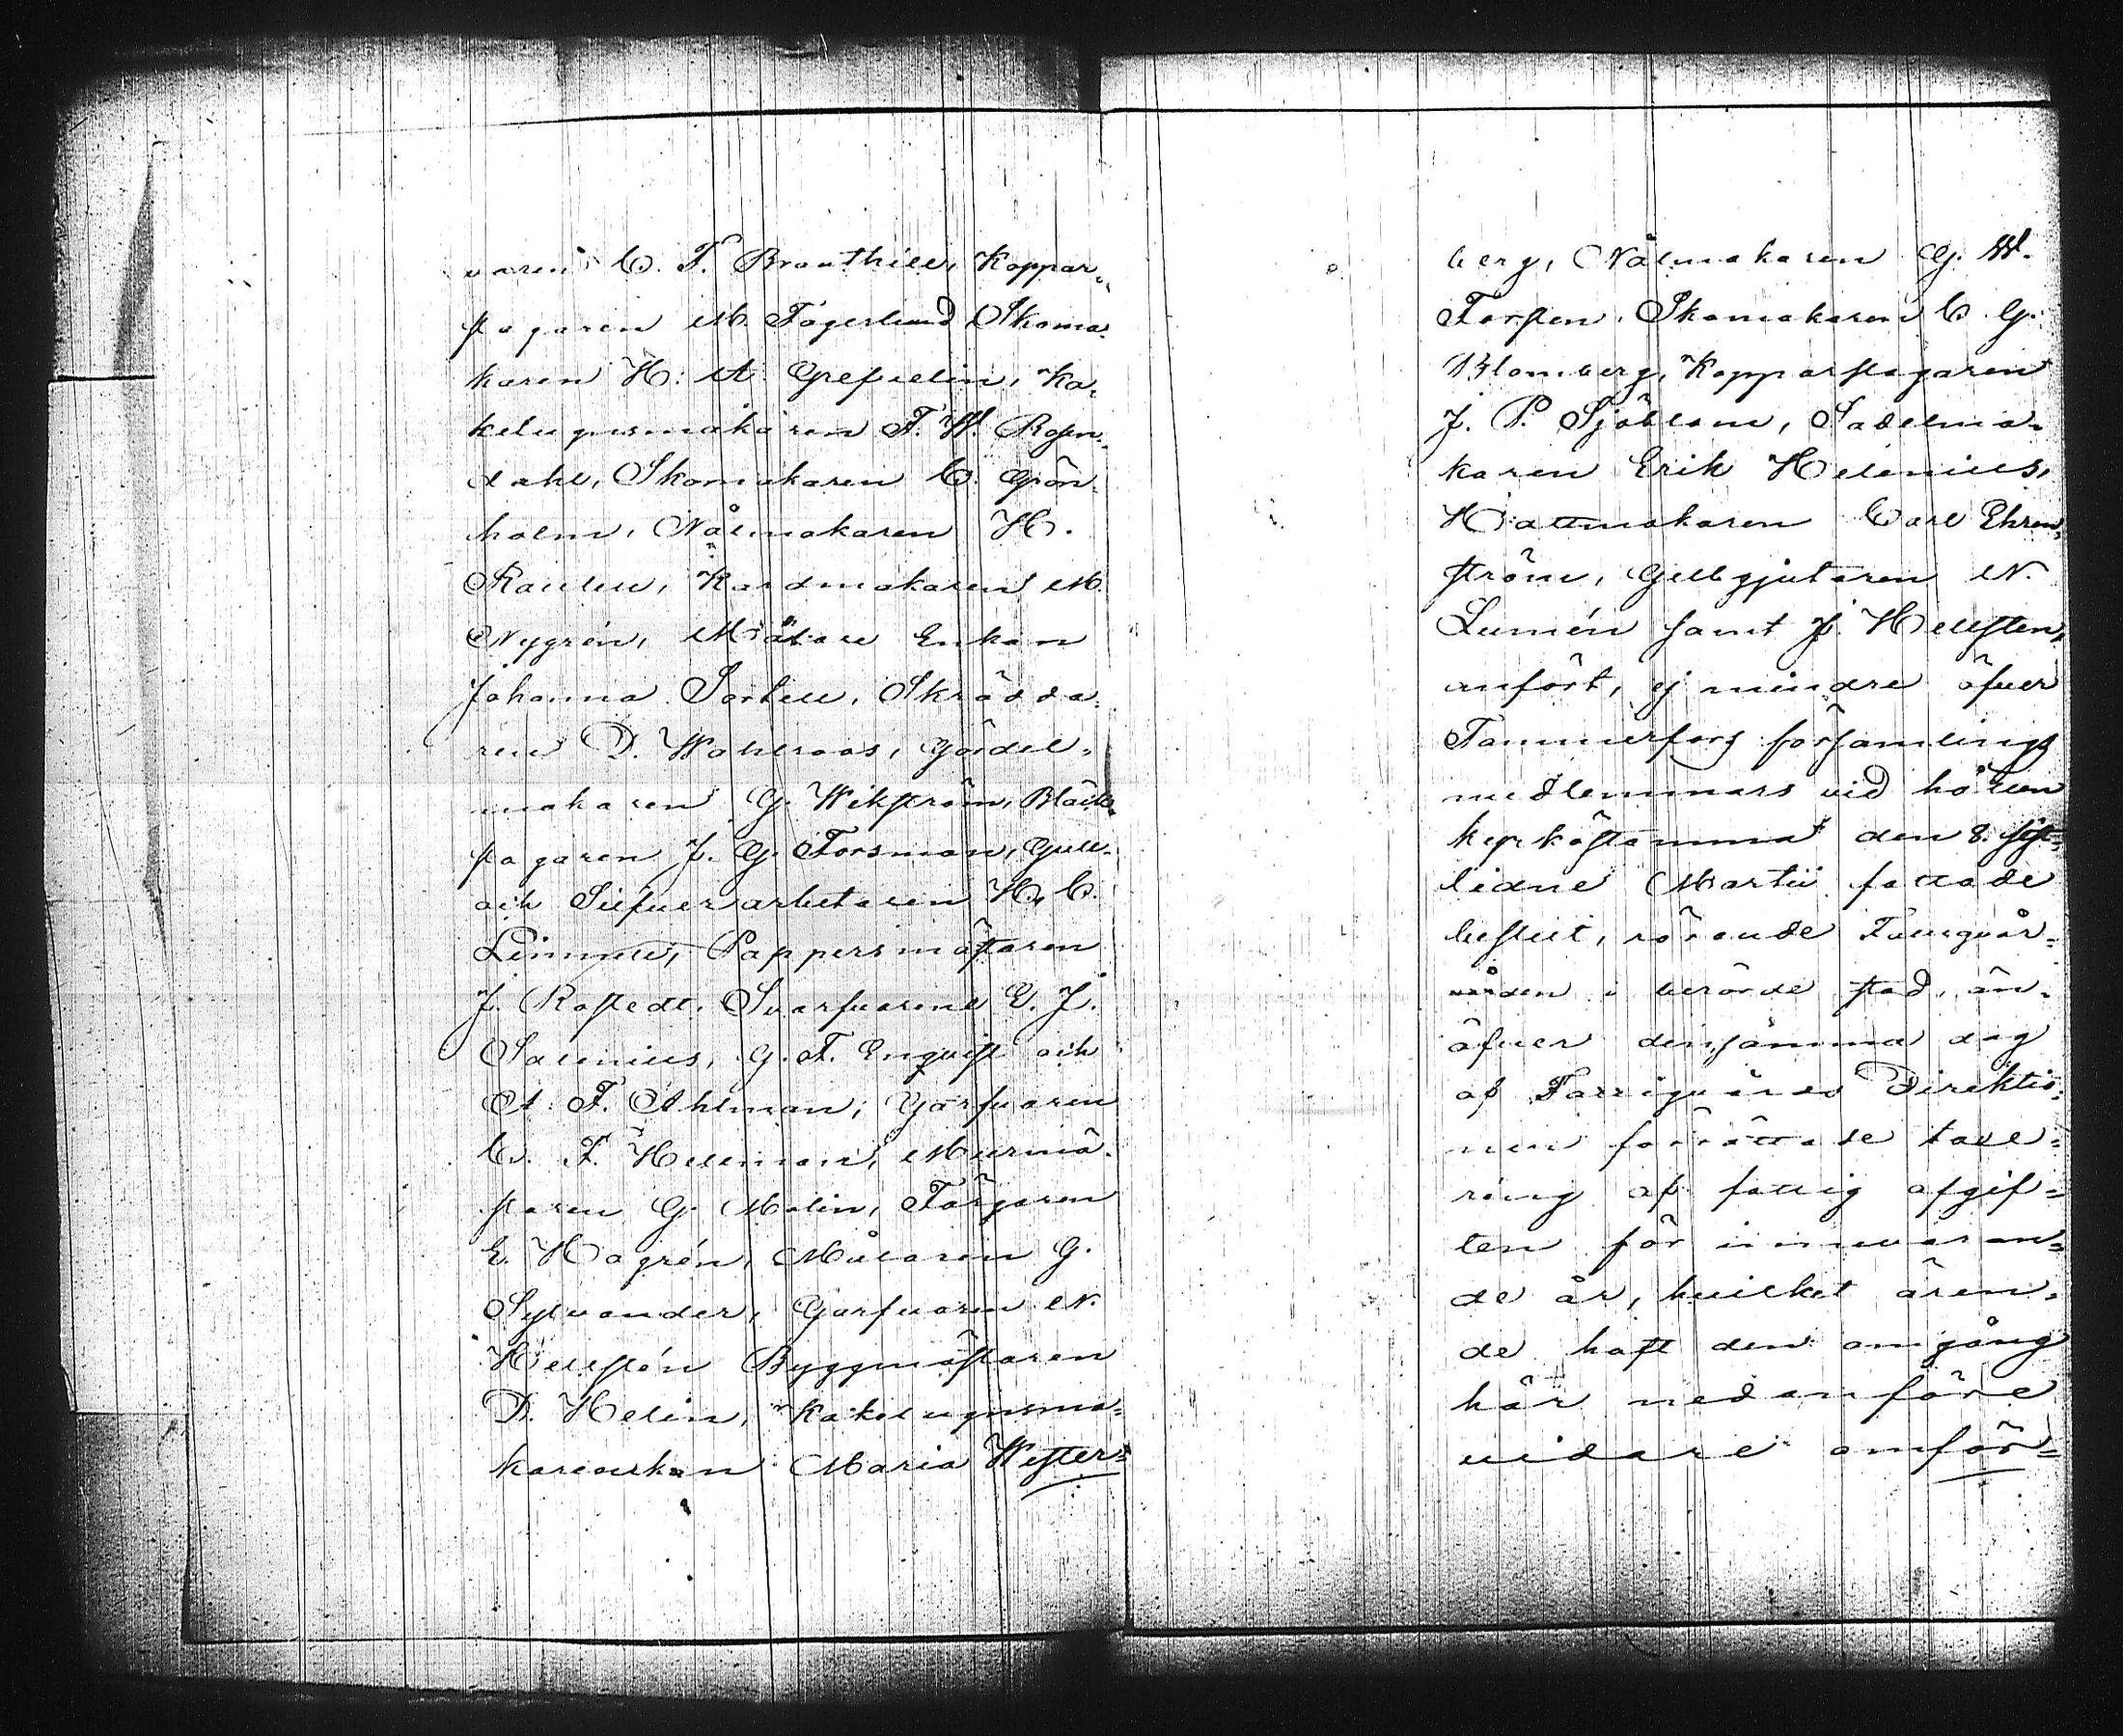 varen C. F. Branthill, Koppar-
slagaren M. Fagerlund Skoma-
karen H: A. Grefvelin, Ka-
kelugnsmakaren F. W. Rosen-
dahl, Skomakaren C. Grön-
holm, Nålmakaren H.
Raulin, Kardmakaren M.
Nygrén, Mätare Enkan
Johanna Sortell, Skrädda-
ren D. Wahlroos, Gördel-
makaren G. Wikström, Bläck-
slagaren J. G. Forsman, Gull-
och Silfverarbetaren H. C.
Limnell, Pappersmästaren
J. Rostedt, Svarfvarene E. J.
Salenius, G. F. Enqvist och
A. F. Ahlman, Garfvaren
C. F. Hellman, Murmä-
staren G. Malin, Färgaren
E. Hagrén, Målaren G.
Sylvander, Garfvaren N.
Hellstén Byggmästaren
D. Helin, Kakelugnsma-
kareenkan Maria Wester-
berg, Nålmakaren G. W.
Forssen, Skomakaren C. G.
Blomberg, Kopparslagaren
J. P. Sjöblom, Sadelma-
karen Erik Helenius,
Hattmakaren Carl Ehren-
ström, Gellbgjutaren N.
Lumén samt J. Hellsten,
anfört, ej mindre öfver
Tammerfors församlings
medlemmars vid hållen
kyrkostämma den 8. sist-
lidne Martii fattade
beslut, rörande Fattigvår-
den i berörde stad, än
öfver densamma dag
af Fattigvårds Direktio-
nen förrättade taxe-
ring af fattig afgif-
ten för innevaran-
de år, hvilket ären-
de haft den omgång
här nedanföre
vidare anför-